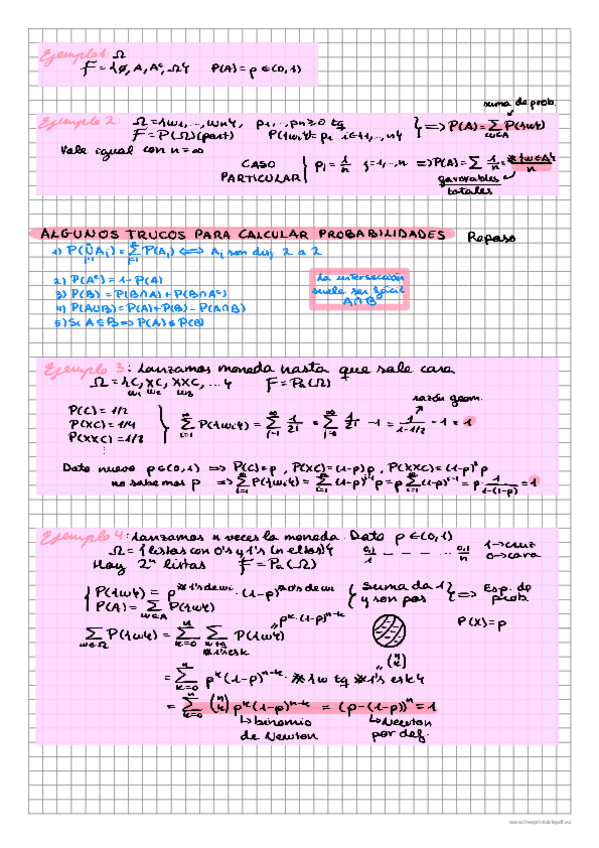 Ejemplo 1: Ω
F = {∅, A, Aᶜ, Ω} P(A) = p ∈ (0,1)
suma de prob.
Ejemplo 2: Ω = {w₁, ..., wₙ}, p₁, ..., pₙ ≥ 0 tq
F = P(Ω) (part) P({wᵢ}) = pᵢ i ∈ {1, ..., n} } ⟹ P(A) = Σ_{w∈A} P({w})
Vale igual con n = ∞
CASO PARTICULAR } pⱼ = 1/n j = 1, ..., n ⟹ P(A) = Σ 1/n = #{w∈A}/n
favorables
totales
ALGUNOS TRUCOS PARA CALCULAR PROBABILIDADES Repaso
1) P(∪Aᵢ) = Σ P(Aᵢ) ⟺ Aᵢ son disj. 2 a 2
2) P(Aᶜ) = 1 - P(A)
3) P(B) = P(B∩A) + P(B∩Aᶜ)
4) P(A∪B) = P(A) + P(B) - P(A∩B)
5) Si A ⊆ B ⟹ P(A) ≤ P(B)
La intersección
suele ser fácil
A∩B
Ejemplo 3: Lanzamos moneda hasta que sale cara
Ω = {C, XC, XXC, ...} F = Pa(Ω)
w₁ w₂ w₃
razón geom.
P(C) = 1/2
P(XC) = 1/4
P(XXC) = 1/8
⋮
Σ_{i=1}^∞ P({wᵢ}) = Σ_{j=1}^∞ 1/2ʲ = Σ_{j=0}^∞ 1/2ʲ - 1 = 1/(1-1/2) - 1 = 1
Dato nuevo p ∈ (0,1) ⟹ P(C) = p, P(XC) = (1-p)p, P(XXC) = (1-p)² p
no sabemos p ⟹ Σ_{i=1}^∞ P({wᵢ}) = Σ_{i=1}^∞ (1-p)^{i-1} p = p Σ_{i=1}^∞ (1-p)^{i-1} = p · 1/(1-(1-p)) = 1
Ejemplo 4: Lanzamos n veces la moneda. Dato p ∈ (0,1)
Ω = {listas con 0's y 1's (n elts)} 0,1/1 _ _ _ ... 0,1/n 1→cruz
Hay 2ⁿ listas F = Pa(Ω) 0→cara
{ P({w}) = p^{#1's de w} · (1-p)^{#0's de w}
P(A) = Σ_{w∈A} P({w})
{ Suma da 1
y son pos } ⟺ Esp. de prob.
Σ_{w∈Ω} P({w}) = Σ_{k=0}^n Σ_{w tq #1's es k} P({w}) " pᵏ·(1-p)ⁿ⁻ᵏ
P(X) = p
= Σ_{k=0}^n pᵏ (1-p)ⁿ⁻ᵏ · #{w tq #1's es k} " (n k)
= Σ_{k=0}^n (n k) pᵏ (1-p)ⁿ⁻ᵏ = (p-(1-p))ⁿ = 1
↳ binomio
de Newton
↳ Newton
por def.